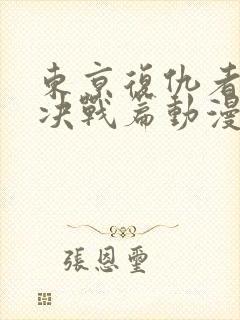 東京復仇者
決戰篇動漫
張恩璽